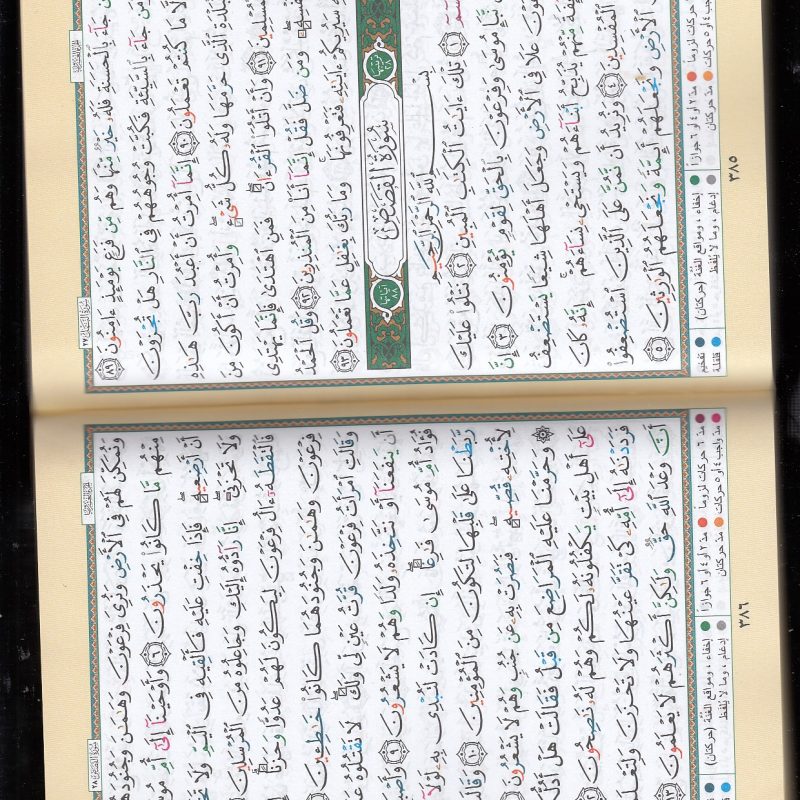 سُورَةُ النَّمْلِ ٢٧
جَآءَ بِٱلْحَسَنَةِ فَلَهُۥ خَيْرٌ مِّنْهَا وَهُم مِّن فَزَعٍ يَوْمَئِذٍ ءَامِنُونَ ٨٩
جَآءَ بِٱلسَّيِّئَةِ فَكُبَّتْ وُجُوهُهُمْ فِى ٱلنَّارِ هَلْ تُجْزَوْنَ
مَا كُنتُمْ تَعْمَلُونَ ٩٠ إِنَّمَآ أُمِرْتُ أَنْ أَعْبُدَ رَبَّ هَٰذِهِ
ٱلَّذِى حَرَّمَهَا وَلَهُۥ كُلُّ شَىْءٍ وَأُمِرْتُ أَنْ أَكُونَ مِنَ
٩١ وَأَنْ أَتْلُوَا۟ ٱلْقُرْءَانَ فَمَنِ ٱهْتَدَىٰ فَإِنَّمَا يَهْتَدِى
وَمَن ضَلَّ فَقُلْ إِنَّمَآ أَنَا۠ مِنَ ٱلْمُنذِرِينَ ٩٢ وَقُلِ ٱلْحَمْدُ
سَيُرِيكُمْ ءَايَٰتِهِۦ فَتَعْرِفُونَهَا وَمَا رَبُّكَ بِغَٰفِلٍ عَمَّا تَعْمَلُونَ ٩٣
ترتيبها ٢٨ سُورَةُ القَصَصِ آياتها ٨٨
بِسْمِ ٱللَّهِ ٱلرَّحْمَٰنِ ٱلرَّحِيمِ
١ تِلْكَ ءَايَٰتُ ٱلْكِتَٰبِ ٱلْمُبِينِ ٢ نَتْلُوا۟ عَلَيْكَ
نَّبَإِ مُوسَىٰ وَفِرْعَوْنَ بِٱلْحَقِّ لِقَوْمٍ يُؤْمِنُونَ ٣ إِنَّ
عَلَا فِى ٱلْأَرْضِ وَجَعَلَ أَهْلَهَا شِيَعًا يَسْتَضْعِفُ
مِّنْهُمْ يُذَبِّحُ أَبْنَآءَهُمْ وَيَسْتَحْىِۦ نِسَآءَهُمْ إِنَّهُۥ كَانَ
ٱلْمُفْسِدِينَ ٤ وَنُرِيدُ أَن نَّمُنَّ عَلَى ٱلَّذِينَ ٱسْتُضْعِفُوا۟
ٱلْأَرْضِ وَنَجْعَلَهُمْ أَئِمَّةً وَنَجْعَلَهُمُ ٱلْوَٰرِثِينَ ٥
حركات لزوما مدّ ٢ أو ٤ أو ٦ جوازا إخفاء، ومواقع الغُنَّة (حركتان) تفخيم
٤ أو ٥ حركات مدّ حركتان إدغام، وما لا يُلفَظ قلقلة
٣٨٥
سُورَةُ القَصَصِ ٢٨
وَنُمَكِّنَ لَهُمْ فِى ٱلْأَرْضِ وَنُرِىَ فِرْعَوْنَ وَهَٰمَٰنَ وَجُنُودَهُمَا
مِنْهُم مَّا كَانُوا۟ يَحْذَرُونَ ٦ وَأَوْحَيْنَآ إِلَىٰٓ أُمِّ
أَنْ أَرْضِعِيهِ فَإِذَا خِفْتِ عَلَيْهِ فَأَلْقِيهِ فِى ٱلْيَمِّ وَلَا
وَلَا تَحْزَنِىٓ إِنَّا رَآدُّوهُ إِلَيْكِ وَجَاعِلُوهُ مِنَ ٱلْمُرْسَلِينَ
فَٱلْتَقَطَهُۥٓ ءَالُ فِرْعَوْنَ لِيَكُونَ لَهُمْ عَدُوًّا وَحَزَنًا
فِرْعَوْنَ وَهَٰمَٰنَ وَجُنُودَهُمَا كَانُوا۟ خَٰطِـِٔينَ
وَقَالَتِ ٱمْرَأَتُ فِرْعَوْنَ قُرَّتُ عَيْنٍ لِّى وَلَكَ لَا تَقْتُلُوهُ
أَن يَنفَعَنَآ أَوْ نَتَّخِذَهُۥ وَلَدًا وَهُمْ لَا يَشْعُرُونَ ٩
فُؤَادُ أُمِّ مُوسَىٰ فَٰرِغًا إِن كَادَتْ لَتُبْدِى بِهِۦ لَوْلَآ
رَّبَطْنَا عَلَىٰ قَلْبِهَا لِتَكُونَ مِنَ ٱلْمُؤْمِنِينَ ١٠ وَقَالَتْ
لِأُخْتِهِۦ قُصِّيهِ فَبَصُرَتْ بِهِۦ عَن جُنُبٍ وَهُمْ لَا يَشْعُرُونَ
وَحَرَّمْنَا عَلَيْهِ ٱلْمَرَاضِعَ مِن قَبْلُ فَقَالَتْ هَلْ أَدُلُّكُمْ
عَلَىٰٓ أَهْلِ بَيْتٍ يَكْفُلُونَهُۥ لَكُمْ وَهُمْ لَهُۥ نَٰصِحُونَ
فَرَدَدْنَٰهُ إِلَىٰٓ أُمِّهِۦ كَىْ تَقَرَّ عَيْنُهَا وَلَا تَحْزَنَ وَلِتَعْلَمَ
أَنَّ وَعْدَ ٱللَّهِ حَقٌّ وَلَٰكِنَّ أَكْثَرَهُمْ لَا يَعْلَمُونَ ١٣
مدّ ٦ حركات لزوما مدّ ٢ أو ٤ أو ٦ جوازا إخفاء، ومواقع الغُنَّة (حركتان)
مدّ واجب ٤ أو ٥ حركات مدّ حركتان إدغام، وما لا يُلفَظ
٣٨٦